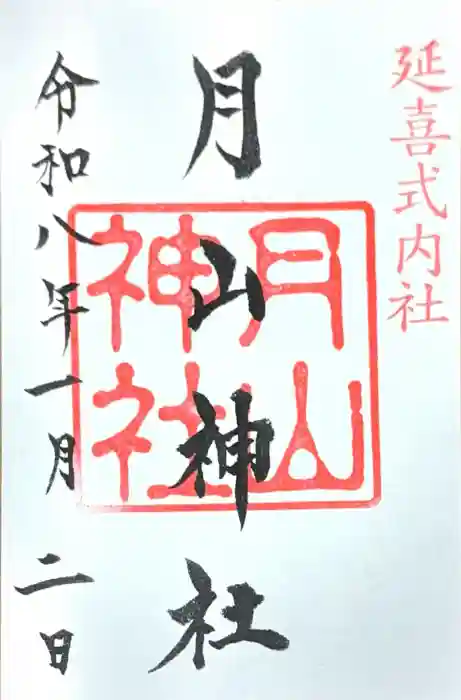 延喜式内社
月山神社
月山神社
令和八年一月二日